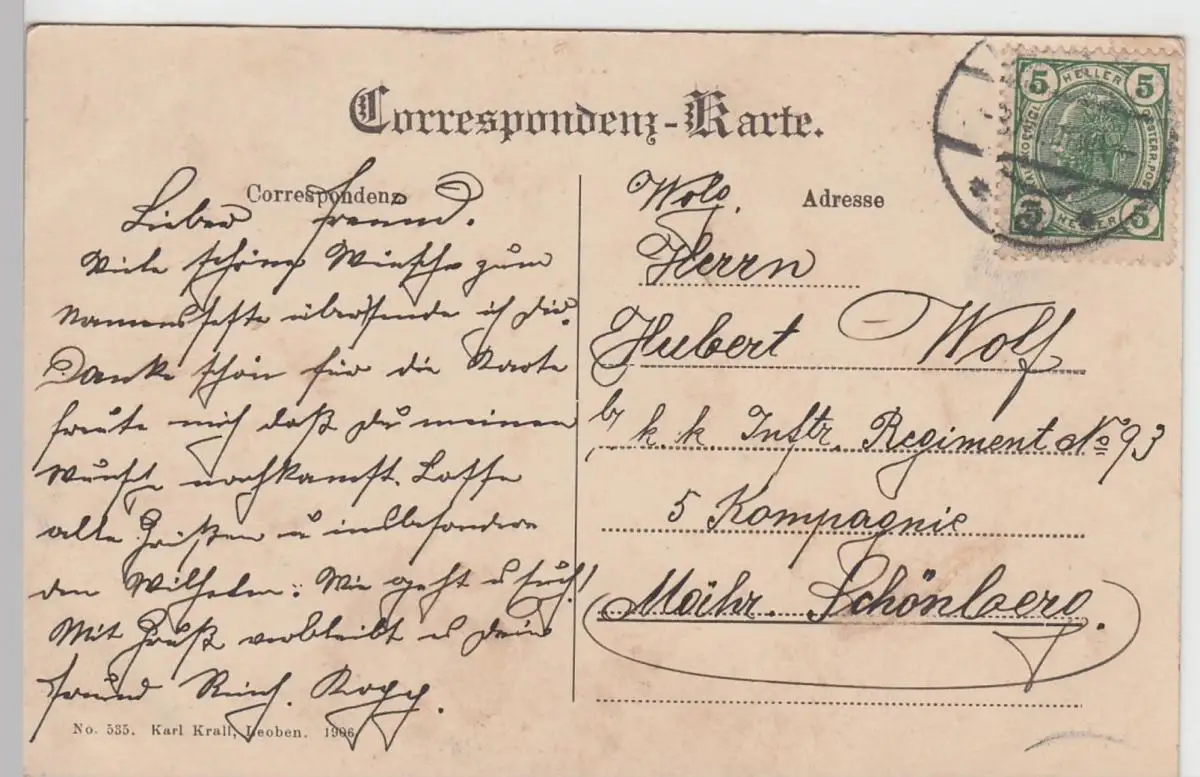 Correspondenz-Karte.
Correspondenz
Lieber Freund.
Viele schöne Wünsche zum
Namensfeste übersende ich dir.
Danke schön für die Karte
freute mich daß du meinen
Wunsch nachkamst. Lasse
alle Grüßen u insbesondere
den Wilhelm: Wie geht's Euch!
Mit Gruß verbleibt s Dein
Freund Reinh.
No. 535. Karl Krall, Leoben. 1906
Adresse
Herrn
Hubert Wolf
k. k Inftr. Regiment No 93
5 Kompagnie
Mähr. Schönberg.
5 HELLER 5
5 HELLER 5